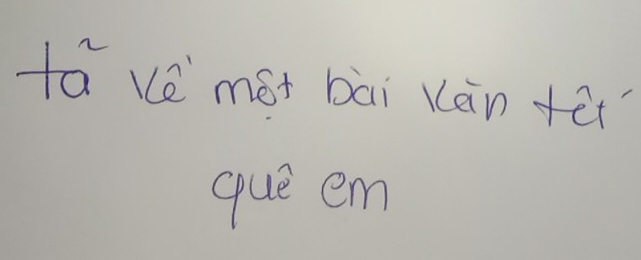 tã kể một bài văn tết
quê em